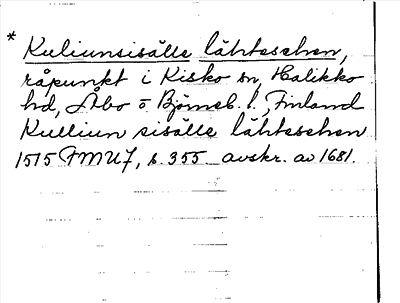 * Kuliunsisälle lähtesehen,
råpunkt i Kisko sn, Halikko
hd, Åbo o. Björneb. l., Finland
Kulliun sisälle lähtesehen
1515 FMU7, s. 355 avskr. av 1681.